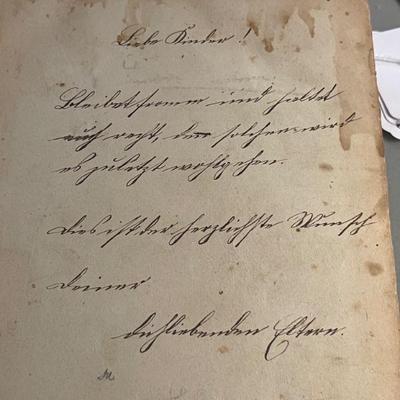 Liebe Kinder!
Bleibet fromm und haltet
euch recht, den solchen wird
es zuletzt wohlgehen.
Dies ist der herzlichste Wunsch
Deiner
dichliebenden Eltern.